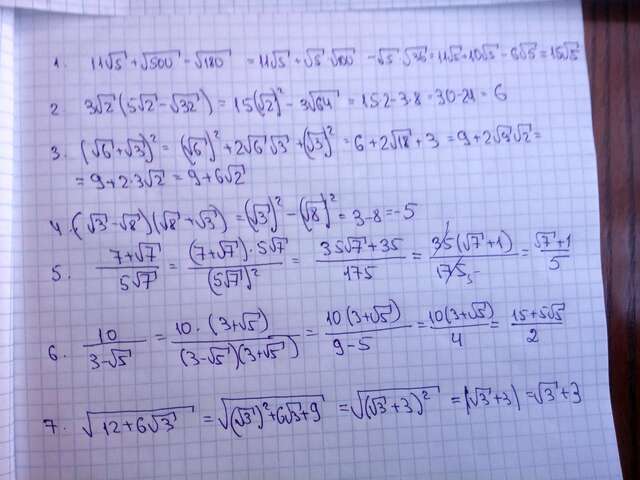 1. 11√5 + √500 - √180 = 11√5 + √5 · √100 - √5 · √36 = 11√5 + 10√5 - 6√5 = 15√5
2 3√2 (5√2 - √32) = 15(√2)² - 3√64 = 15·2 - 3·8 = 30 - 24 = 6
3. (√6 + √3)² = (√6)² + 2√6 √3 + (√3)² = 6 + 2√18 + 3 = 9 + 2√3²√2 =
= 9 + 2·3√2 = 9 + 6√2
4. (√3 - √8)(√8 + √3) = (√3)² - (√8)² = 3 - 8 = -5
5. (7+√7)/(5√7) = ((7+√7)·5√7)/(5√7)² = (35√7+35)/175 = 35(√7+1)/175 5 = (√7+1)/5
6. 10/(3-√5) = 10·(3+√5)/((3-√5)(3+√5)) = 10(3+√5)/(9-5) = 10(3+√5)/4 = (15+5√5)/2
7. √(12+6√3) = √((√3)²+6√3+9) = √((√3+3)²) = |√3+3| = √3+3